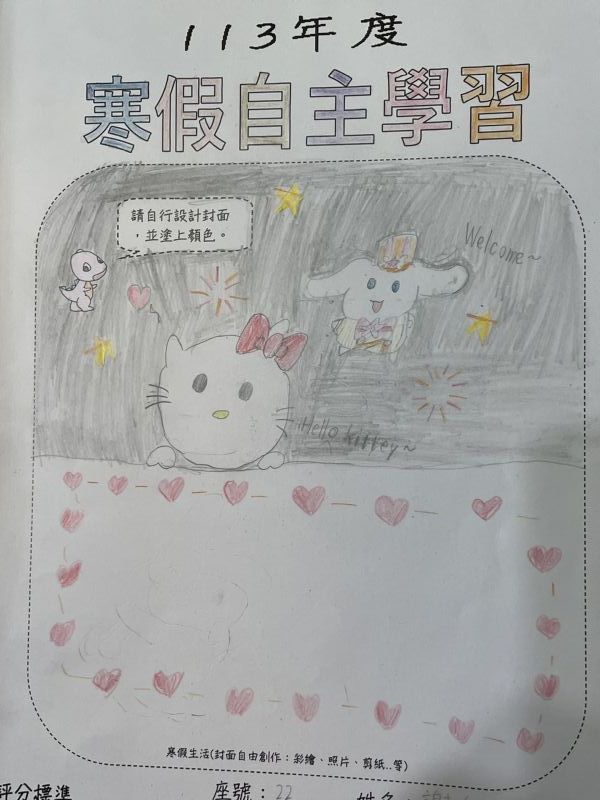 113年度
寒假自主學習
請自行設計封面
，並塗上顏色。
Welcome~
Hello kittey~
寒假生活(封面自由創作：彩繪、照片、剪紙..等)
評分標準 座號：22 姓名：謝